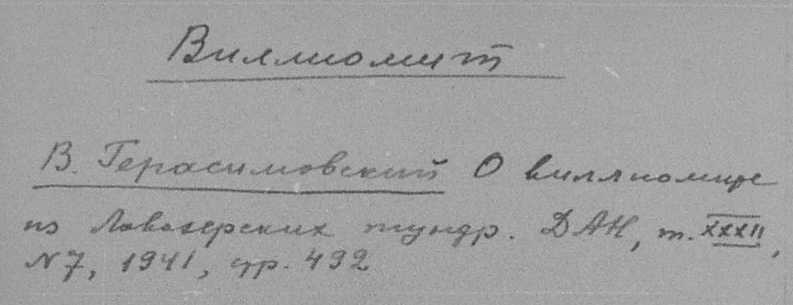 Виллиомит
В. Герасимовский О виллиомите
из Ловозерских тундр. ДАН, т. XXXII,
N 7, 1941, стр. 492